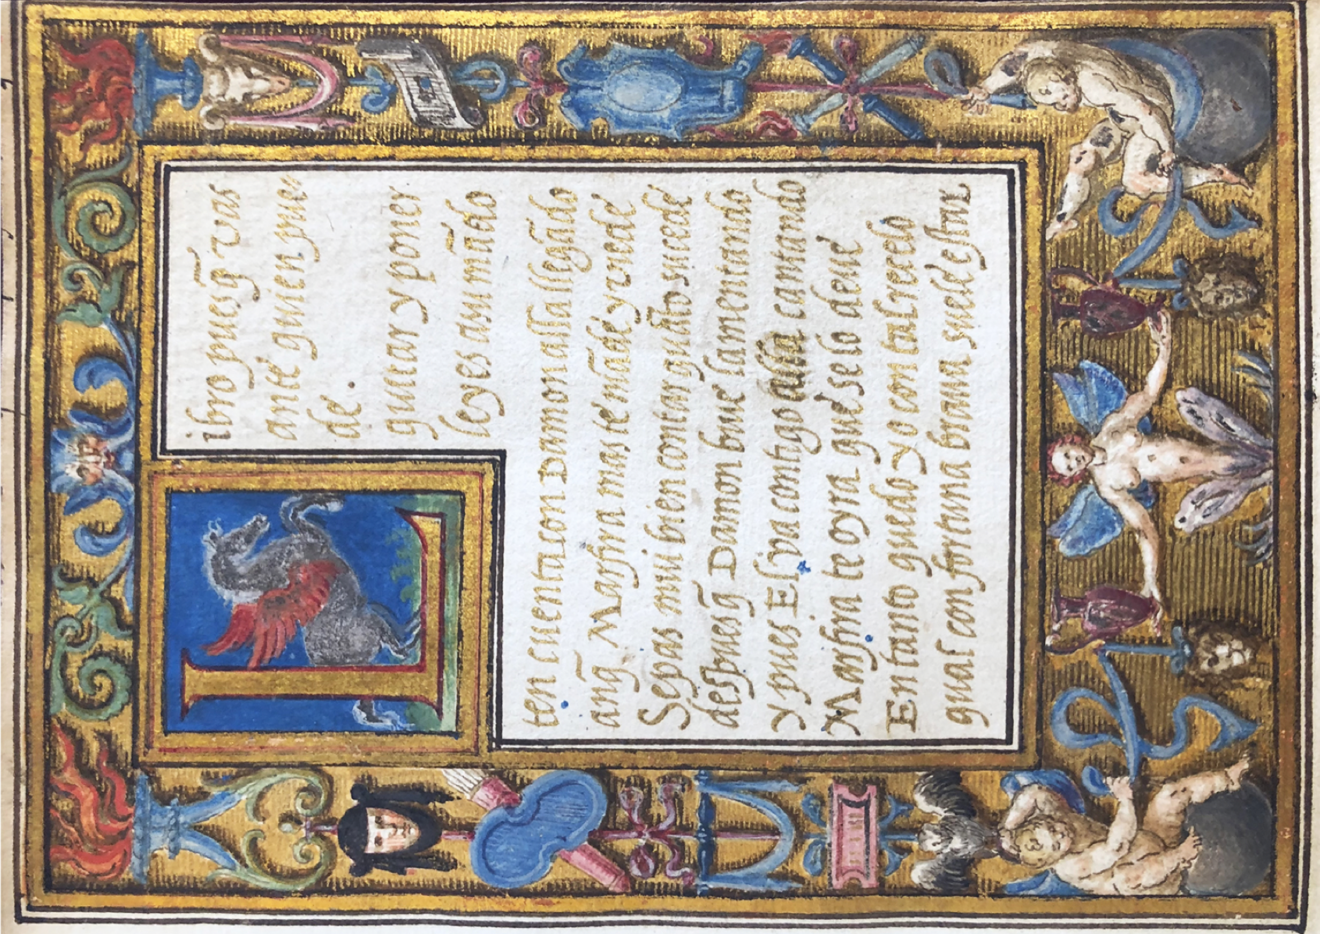 Libro pues q̄ vas
ante quien pue
de.
quitar y poner
leyes a su mādo
ten cuenta con Damon alla llegādo
anq̄ Marfira mas te māde y vede
Sepas mui bien contar quāto sucede
despues q̄ Damon biue lamentando
y pues El va contigo alla cantando
Marfira te oyra que se lo deue
En tanto quedo yo con tal recelo
qual con fortuna braua suele estar